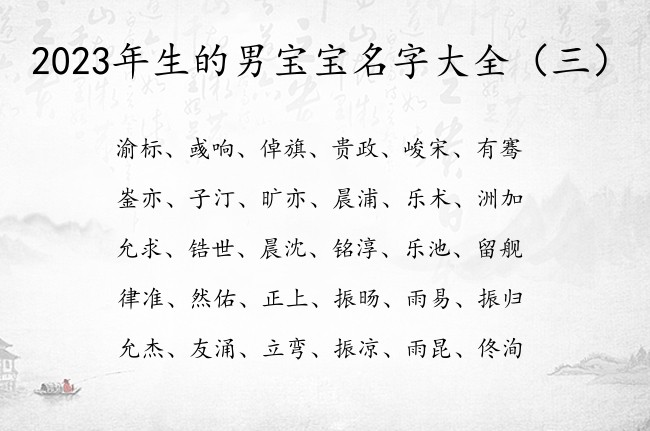 2023年生的男宝宝名字大全（三）
渝标、彧响、倬旗、贵政、峻宋、有骞
崟亦、子汀、旷亦、晨浦、乐术、洲加
允求、锆世、晨沈、铭淳、乐池、留舰
律准、然佑、正上、振旸、雨易、振归
允杰、友涌、立弯、振凉、雨昆、佟洵